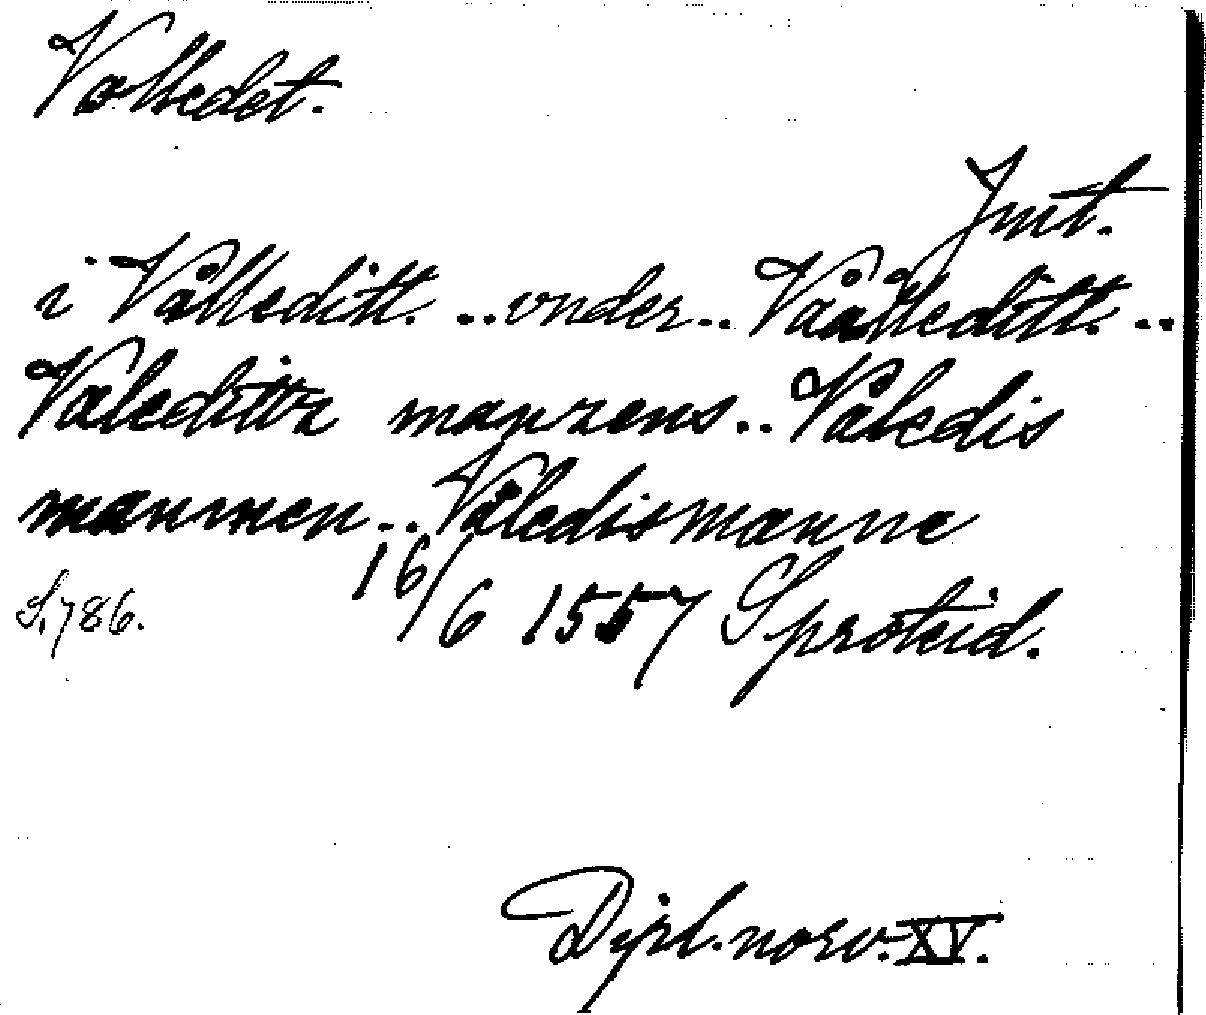 Valledet.
Jmt.
i Vålleditt. .. vnder .. Våålleditt. ..
Våleditta mannens .. Våledis
mannen .. Våledismanne
S. 786. 16/6 1557 Sproteid.
Dipl. norv. XV.